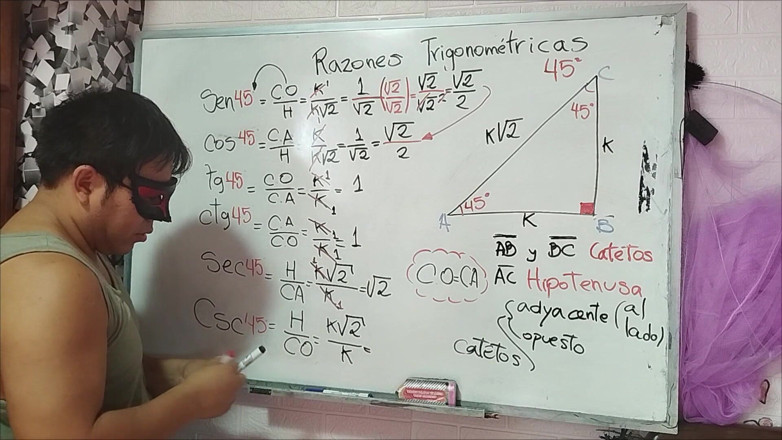 Razones Trigonométricas
Sen45 = CO/H = K1/K√2 = 1/√2 (√2/√2) = √2/√2² = √2/2
Cos45 = CA/H = K/K√2 = 1/√2 = √2/2
Tg45 = CO/CA = K1/K1 = 1
Ctg45 = CA/CO = K1/K1 = 1
Sec45 = H/CA = K√2/K1 = √2
Csc45 = H/CO = K√2/K =
45°
C
45°
K√2
K
A
45°
K
B
AB y BC Catetos
CO=CA
AC Hipotenusa
Catetos
adyacente (al lado)
opuesto